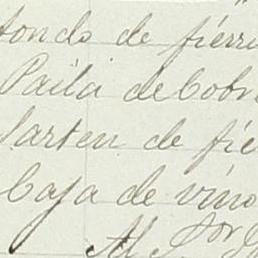 fondo de fierr
Paila de Cobr
Sarten de fie
Caja de vino
Al Sor